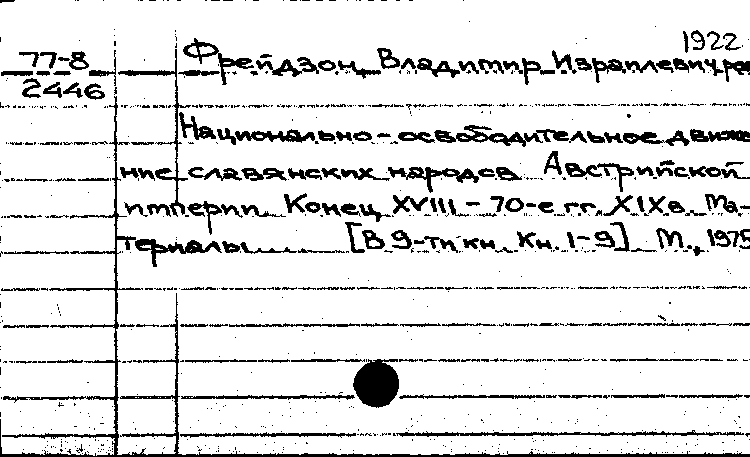 1922
77-8
2446
Фрейдзон, Владимир Израилевич, ред
Национально-освободительное движе
ние славянских народов Австрийской
империи. Конец XVIII - 70-е гг. XIXв. Ма-
териалы.... [В 9-ти кн. Кн. 1-9] М., 1975